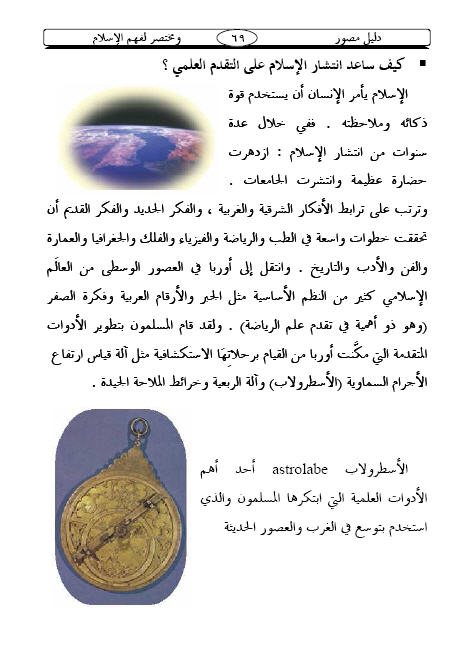 دليل مصور ٦٩ ومختصر لفهم الإسلام
▪ كيف ساعد انتشار الإسلام على التقدم العلمي ؟
الإسلام يأمر الإنسان أن يستخدم قوة
ذكائه وملاحظته . ففي خلال عدة
سنوات من انتشار الإسلام : ازدهرت
حضارة عظيمة وانتشرت الجامعات .
وترتب على ترابط الأفكار الشرقية والغربية ، والفكر الجديد والفكر القديم أن
تحققت خطوات واسعة في الطب والرياضة والفيزياء والفلك والجغرافيا والعمارة
والفن والأدب والتاريخ . وانتقل إلى أوربا في العصور الوسطى من العالَم
الإسلامي كثير من النظم الأساسية مثل الجبر والأرقام العربية وفكرة الصفر
(وهو ذو أهمية في تقدم علم الرياضة) . ولقد قام المسلمون بتطوير الأدوات
المتقدمة التي مكَّنت أوربا من القيام برحلاتِهَا الاستكشافية مثل آلة قياس ارتفاع
الأجرام السماوية (الأسطرولاب) وآلة الربعية وخرائط الملاحة الجيدة .
الأسطرولاب astrolabe أحد أهم
الأدوات العلمية التي ابتكرها المسلمون والذي
استخدم بتوسع في الغرب والعصور الحديثة